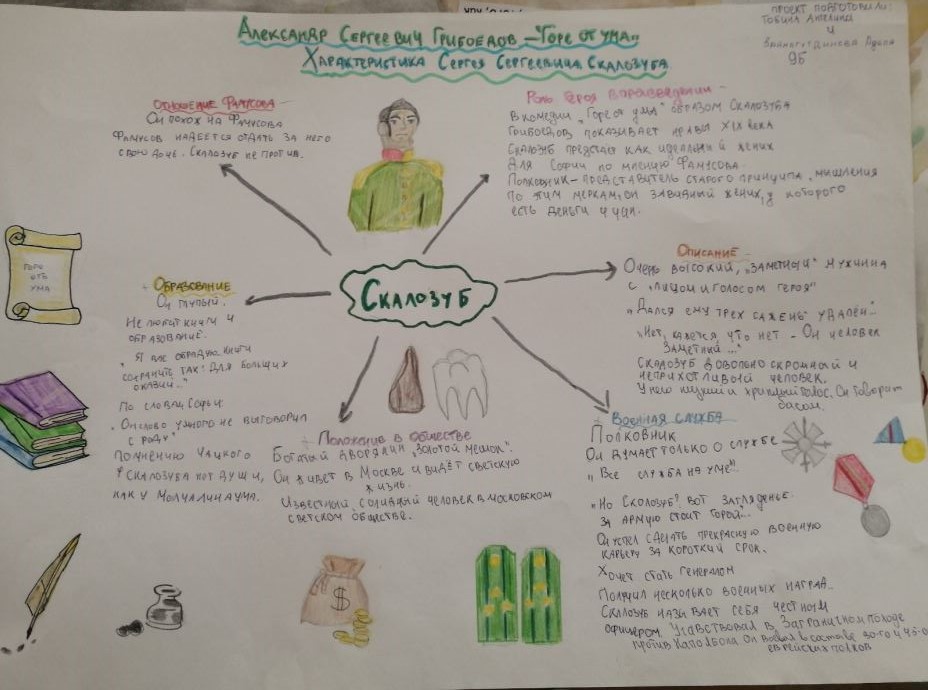 ПРОЕКТ ПОДГОТОВИЛИ:
И
9Б
Александр Сергеевич Грибоедов – "Горе от ума"
Характеристика Сергея Сергеевича Скалозуба
Отношение Фамусова
Он похож на Фамусова
Фамусов надеется отдать за него
свою дочь. Скалозуб не против.
Роль героя в произведении –
В комедии "Горе от ума" образом Скалозуба
Грибоедов показывает нравы XIX века
Скалозуб предстает как идеальный жених
для Софии по мнению Фамусова.
Полковник – представитель старого принципа мышления
По этим меркам, он завидный жених, у которого
есть деньги и чин.
Описание –
Очень высокий, "заметный" мужчина
с "лицом и голосом героя"
"Дался ему трех сажень удалец..."
"Нет, кажется что нет – Он человек
заметный..."
Скалозуб довольно скромный и
неприхотливый человек.
У него низкий и хриплый голос. Он говорит
басом.
Горе
отъ
ума
Образование
Он глупый.
Не любит книги и
образование.
"Я вас обрадую. Книги
сохранить так: для больших
оказий.."
По словам Софьи:
"Он слово умного не выговорил
с роду"
По мнению Чацкого
у Скалозуба нет души,
как у Молчалина ума.
Скалозуб
Положение в обществе
Богатый дворянин "Золотой мешок".
Он живет в Москве и ведёт светскую
жизнь.
Известный, солидный человек в московском
светском обществе.
Военная служба
Полковник
Он думает только о службе
"Все служба на уме"
"Но Скалозуб? Вот загляденье:
За армию стоит горой...
Он успел сделать прекрасную военную
карьеру за короткий срок.
Хочет стать генералом
Получил несколько военных наград..
Скалозуб называет себя честным
офицером. Участвовал в Заграничном походе
против Наполеона. Он воевал в составе 30-го и 45-о
егерских полков
$